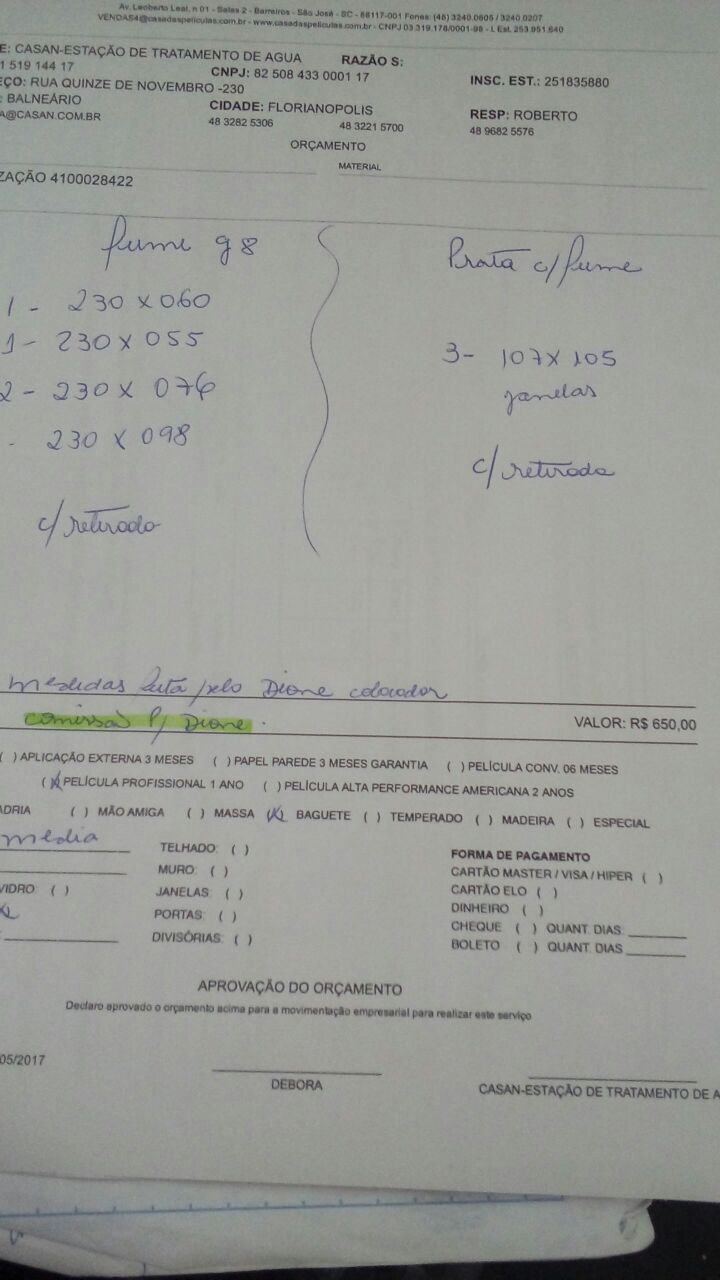 Av. Leoberto Leal, n 01 - Salas 2 - Barreiros - São José - SC - 88117-001 Fones: (48) 3240.0605 / 3240.0207
VENDAS4@casadaspeliculas.com.br - www.casadaspeliculas.com.br - CNPJ 03.319.178/0001-98 - I. Est. 253.951.640
E: CASAN-ESTAÇÃO DE TRATAMENTO DE AGUA RAZÃO S:
1 519 144 17 CNPJ: 82 508 433 0001 17 INSC. EST.: 251835880
EÇO: RUA QUINZE DE NOVEMBRO -230
: BALNEÁRIO CIDADE: FLORIANOPOLIS RESP: ROBERTO
A@CASAN.COM.BR 48 3282 5306 48 3221 5700 48 9682 5576
ORÇAMENTO
MATERIAL
ZAÇÃO 4100028422
fume g8
1 - 230 x 060
1 - 230 x 055
2 - 230 x 076
- 230 x 098
c/ retirada
Prata c/ fume
3- 107 x 105
janelas
c/ retirada
medidas feita pelo Dione colocador
comissão p/ Dione. VALOR: R$ 650,00
( ) APLICAÇÃO EXTERNA 3 MESES ( ) PAPEL PAREDE 3 MESES GARANTIA ( ) PELÍCULA CONV. 06 MESES
(X) PELÍCULA PROFISSIONAL 1 ANO ( ) PELÍCULA ALTA PERFORMANCE AMERICANA 2 ANOS
ADRIA ( ) MÃO AMIGA ( ) MASSA (X) BAGUETE ( ) TEMPERADO ( ) MADEIRA ( ) ESPECIAL
media
TELHADO: ( )
MURO: ( )
VIDRO: ( ) JANELAS: ( )
X PORTAS: ( )
: DIVISÓRIAS: ( )
FORMA DE PAGAMENTO
CARTÃO MASTER / VISA / HIPER ( )
CARTÃO ELO ( )
DINHEIRO ( )
CHEQUE ( ) QUANT. DIAS:
BOLETO ( ) QUANT. DIAS
APROVAÇÃO DO ORÇAMENTO
Declaro aprovado o orçamento acima para a movimentação empresarial para realizar este serviço
05/2017
DEBORA
CASAN-ESTAÇÃO DE TRATAMENTO DE A